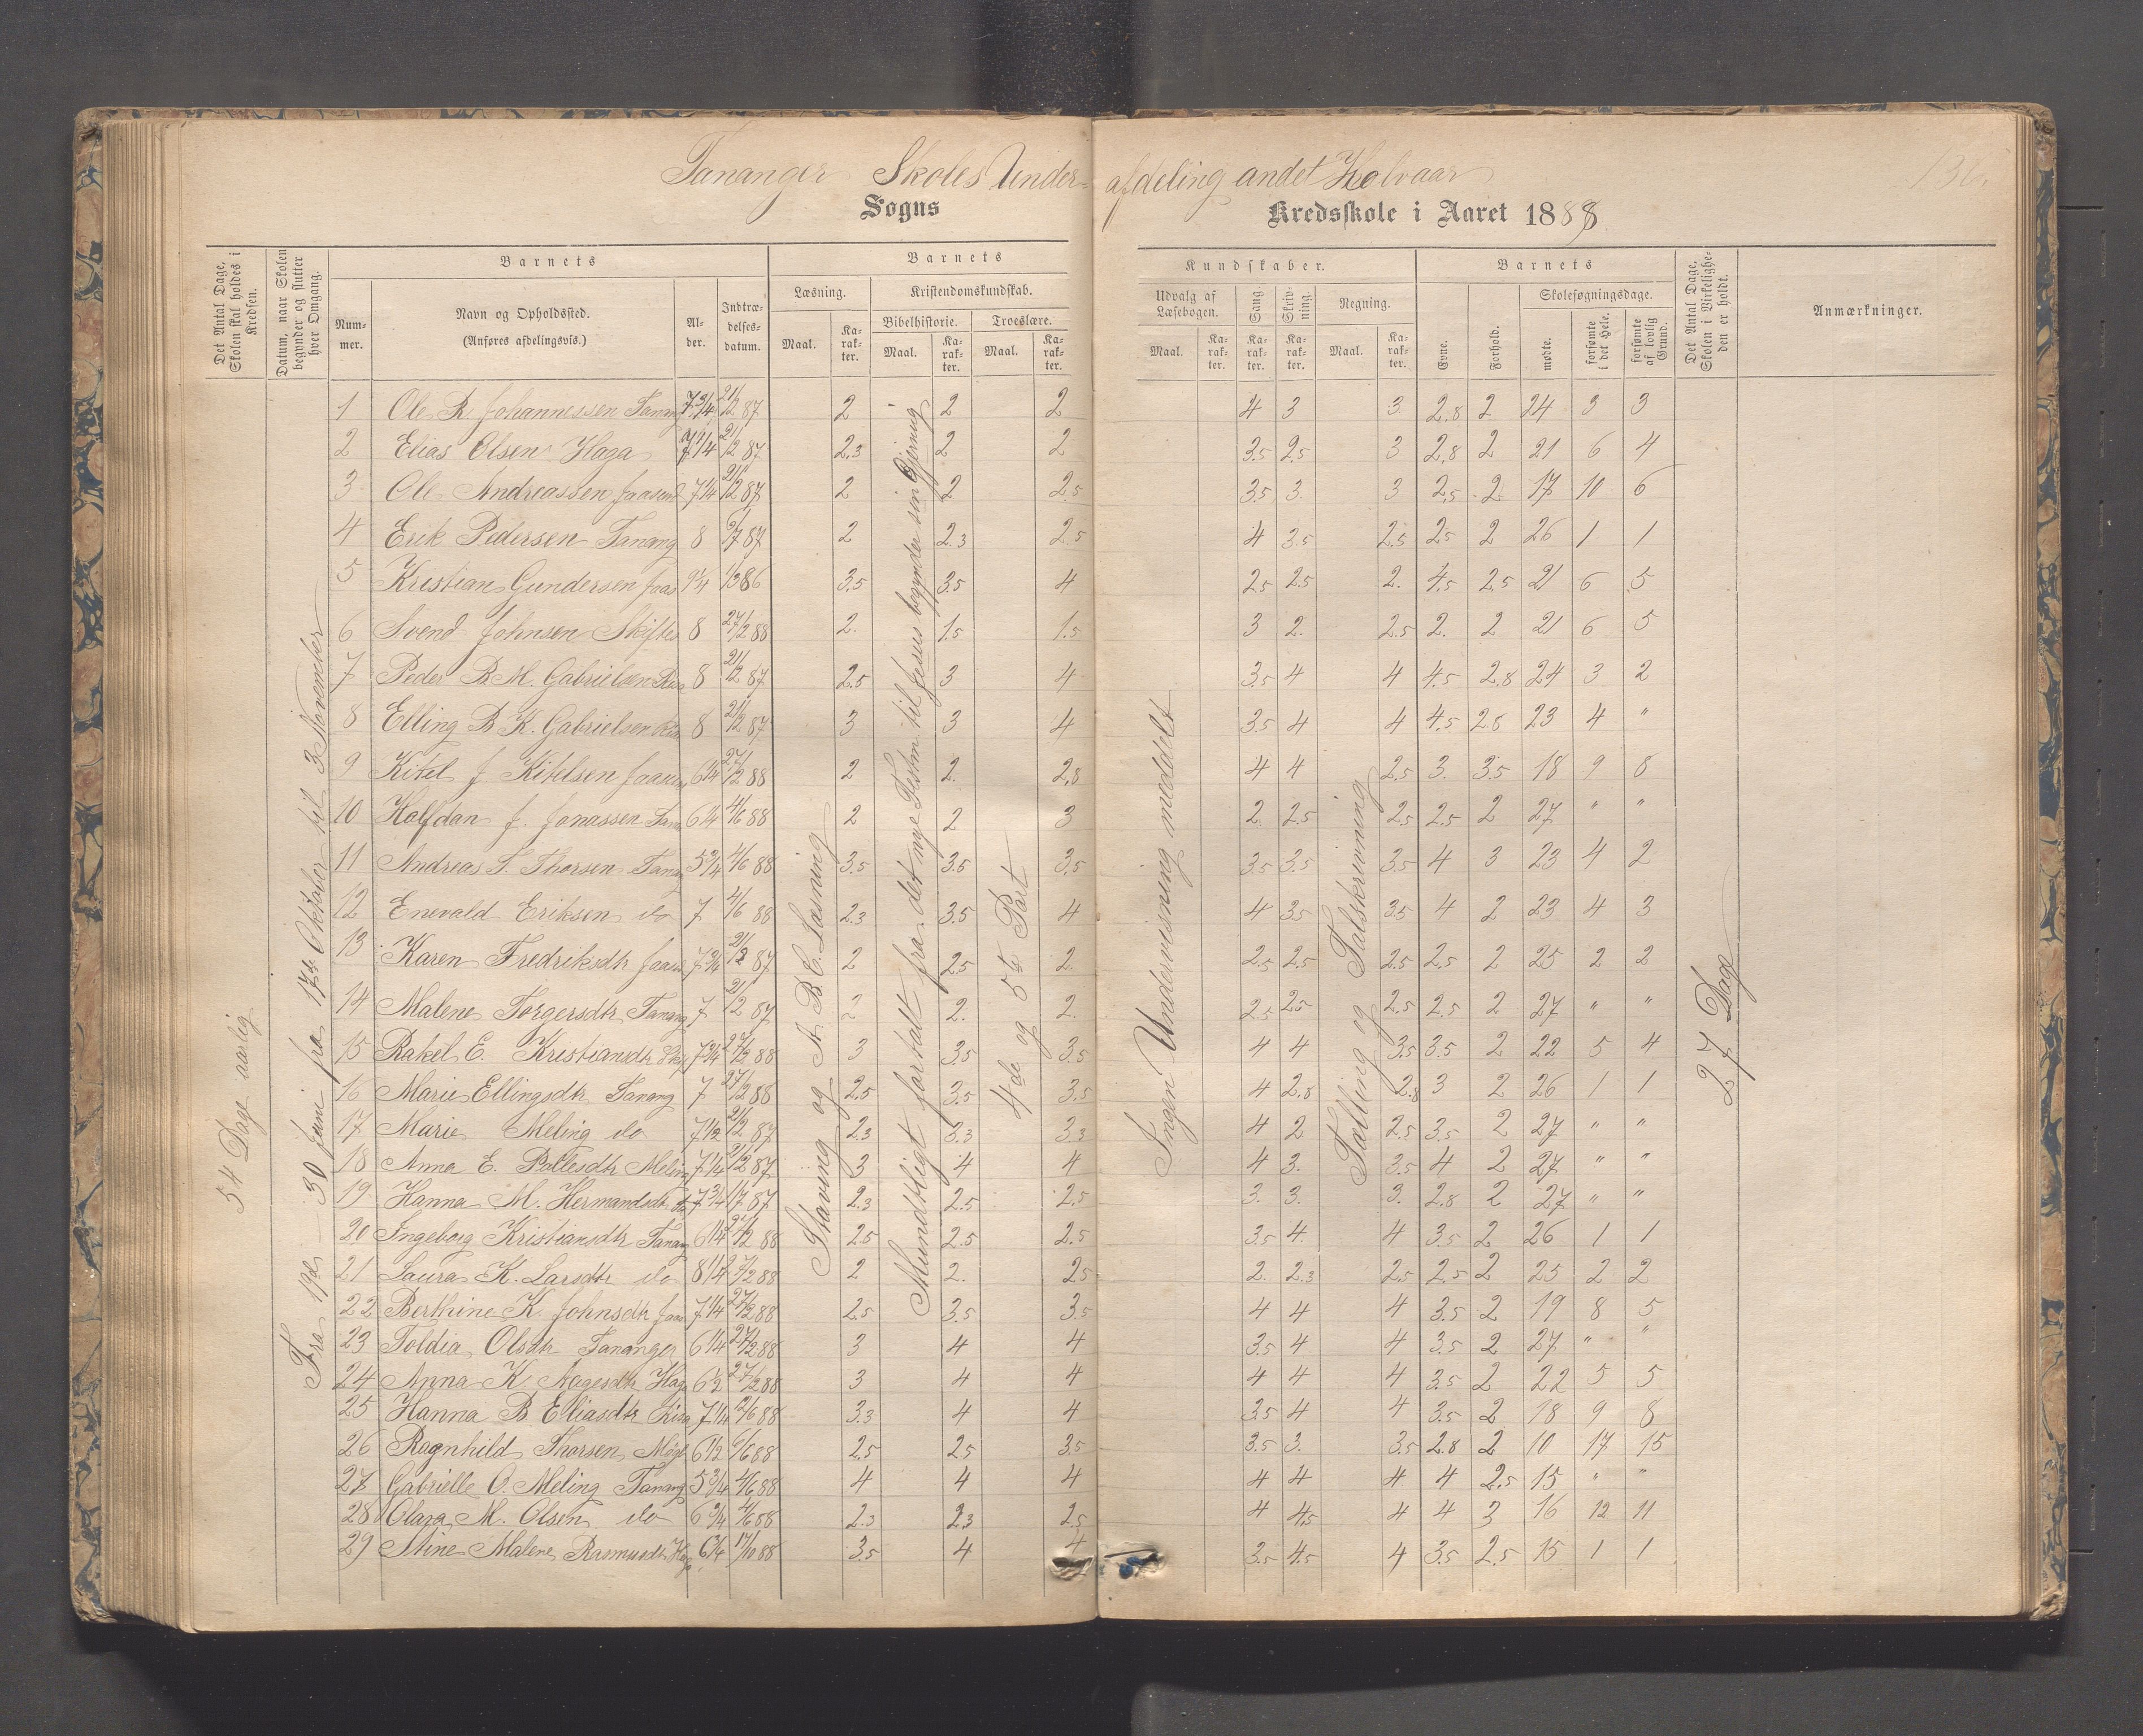 Tananger Skoles Under- afdeling andet Halvaar
Sogns Kredsskole i Aaret 1888
Det Antal Dage, Skolen skal holdes i Kredsen.
Datum, naar Skolen begynder og slutter hver Omgang.
Barnets
Nummer.
Navn og Opholdssted.
(Anføres afdelingsvis.)
Alder.
Indtrædelsesdatum.
Barnets
Læsning.
Maal.
Karakter.
Kristendomskundskab.
Bibelhistorie.
Maal.
Karakter.
Troeslære.
Maal.
Karakter.
Kundskaber.
Udvalg af Læsebogen.
Maal.
Karakter.
Sang.
Karakter.
Skrivning.
Karakter.
Regning.
Maal.
Karakter.
Barnets
Evne.
Forhold.
Skolesøgningsdage.
mødte.
forsømte i det Hele.
forsømte af lovlig Grund.
Det Antal Dage, Skolen i Virkeligheden er holdt.
Anmærkninger.
54 Dage aarlig
Fra 19de - 30 Juni fra 17de Oktober til 3 November
Staving og A B C Læsning
Mundtligt fortalt fra det nye Testm. til Jesus begynder sin Gjerning
4de og 5te Part
Ingen Undervisning meddelt
Tælling og Talskrivning
27 Dage
1 Ole R. Johannessen Tanang 7 3/4 21/12 87 2 2 2 4 3 3 2.8 2 24 3 3
2 Elias Olsen Haga 7 1/4 21/12 87 2.3 2 2 3.5 2.5 3 2.8 2 21 6 4
3 Ole Andreassen Jaasund 7 1/4 21/12 87 2 2 2.5 3.5 3 3 2.5 2 17 10 6
4 Erik Pedersen Tanang 8 87 2 2.3 2.5 4 3.5 2.5 2.5 2 26 1 1
5 Kristian Gundersen Jaas 9 1/4 86 3.5 3.5 4 2.5 2.5 2. 4.5 2.5 21 6 5
6 Svend Johnsen Skiftes 8 27/2 88 2. 1.5 1.5 3 2. 2.5 2. 2 21 6 5
7 Peder B. M. Gabrielsen 8 21/12 87 2.5 3 4 3.5 4 4 4.5 2.8 24 3 2
8 Elling B K. Gabrielsen 8 21/12 87 3 3 4 3.5 4 4 4.5 2.8 23 4 "
9 Kitel J Kitelsen Jaasun 6 1/4 27/2 88 2 2. 2.8 4 4 2.5 3. 3.5 18 9 8
10 Halfdan J. Jonassen Tan 6 1/4 4/6 88 2 2 3 2. 2.5 2.5 2.5 2 27 " "
11 Andreas S. Thorsen Tanang 5 3/4 4/6 88 3.5 3.5 3.5 3.5 3.5 3.5 4 3 23 4 2
12 Enevald Eriksen do 7 4/6 88 2.3 3.5 4 4 3.5 3.5 4 2 23 4 3
13 Karen Fredriksdtr Jaasu 7 3/4 21/12 87 2 2.5 2. 2.5 2.5 2.5 2.5 2 25 2 2
14 Malene Torgersdtr Tanang 7 21/12 87 2 2. 2. 2.5 2.5 2.5 2.5 2 27 " "
15 Rakel E. Kristiansdtr 7 3/4 27/2 88 3 3.5 3.5 4 4 3.5 3.5 2 22 5 4
16 Marie Ellingsdtr Tanang 7 27/2 88 2.5 3.5 3.5 4 2.8 2.8 3 2 26 1 1
17 Marie Meling do 7 1/2 21/12 87 2.3 3.3 3.3 4 2 2.5 3.5 2 27 " "
18 Anna E. Pallesdtr Meling 7 1/4 21/12 87 3 4 4 4 3. 3.5 4 2 27 " "
19 Hanna M. Hermandsdtr do 7 3/4 87 2.3 2.5 2.5 3. 3. 3. 2.8 2 27 " "
20 Ingeborg Kristiansdtr Tanang 6 1/4 27/2 88 2.5 2.5 2.5 3.5 4. 4 3.5 2 26 1 1
21 Laura K. Larsdtr do 8 1/4 27/2 88 2 2. 2.5 2. 2.3 2.5 2.5 2 25 2 2
22 Berthine K. Johnsdtr Jaas 7 1/4 27/2 88 2.5 3.5 3.5 4 4 4 3.5 2 19 8 5
23 Toldia Olsdtr Tananger 6 1/4 27/2 88 3 4 4 3.5 4 4 3.5 2 27 " "
24 Anna K Aagesdtr Hag 6 1/2 27/2 88 3 4 4 4 4 4 3.5 2 22 5 5
25 Hanna B Eliasdtr 7 1/4 4/6 88 3.3 4 4 3.5 4 4 3.5 2 18 9 8
26 Ragnhild Thorsen 6 1/2 88 2.5 2.5 3.5 3.5 3. 3.5 2.8 2 10 17 15
27 Gabrielle O. Meling Tanang 5 3/4 4/6 88 4 4 4 4 4 4 4 2.5 15 " "
28 Clara M. Olsen do 6 3/4 4/6 88 2.3 2.3 2.5 4 4.5 4 4 3 16 12 11
29 Stine Malene Rasmusdtr Hag 6 3/4 17/10 88 3.5 4 4 3.5 4.5 4 3.5 2.5 15 1 1